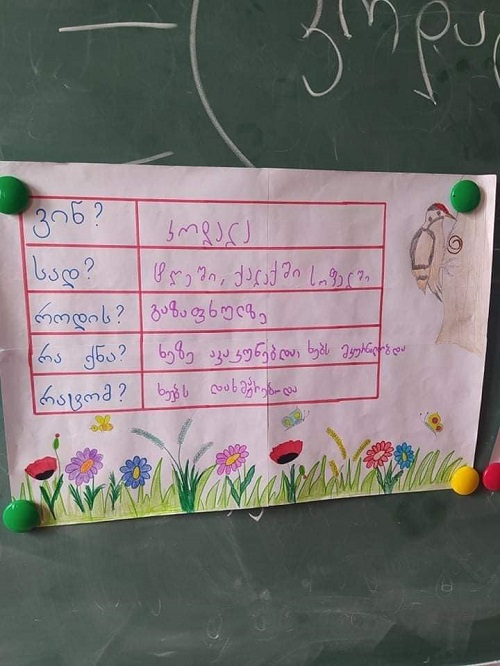 კოდალა
ვინ? კოდალა
სად? ტყეში, ქალაქში სოფელში
როდის? გაზაფხულზე
რა ქნა? ხეზე აკაკუნებდა, ხებს მკურნალობდა
რატომ? ხებს დაეხმარებოდა